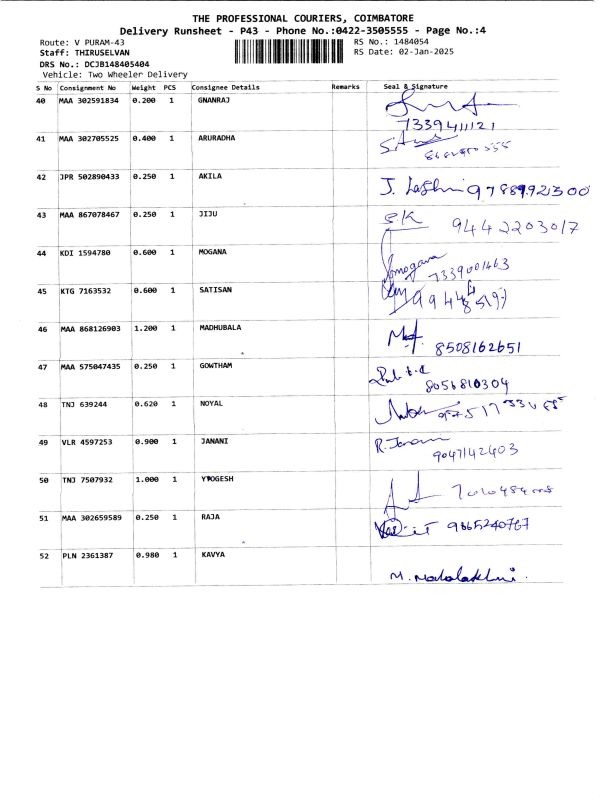 THE PROFESSIONAL COURIERS, COIMBATORE
Delivery Runsheet - P43 - Phone No.:0422-3505555 - Page No.:4
Route: V PURAM-43 RS No.: 1484054
Staff: THIRUSELVAN RS Date: 02-Jan-2025
DRS No.: DCJB148405404
Vehicle: Two Wheeler Delivery
S No Consignment No Weight PCS Consignee Details Remarks Seal & Signature
40 MAA 302591834 0.200 1 GNANRAJ
7339411121
41 MAA 302705525 0.400 1 ARURADHA
42 JPR 502890433 0.250 1 AKILA
J. 
43 MAA 867078467 0.250 1 JIJU
S.K 9442203017
44 KDI 1594780 0.600 1 MOGANA
7339001463
45 KTG 7163532 0.600 1 SATISAN
46 MAA 868126903 1.200 1 MADHUBALA
8508162651
47 MAA 575047435 0.250 1 GOWTHAM
8056810304
48 TNJ 639244 0.620 1 NOYAL
49 VLR 4597253 0.900 1 JANANI
R. 
9047142403
50 TNJ 7507932 1.000 1 YOGESH
51 MAA 302659589 0.250 1 RAJA
9865240767
52 PLN 2361387 0.980 1 KAVYA
M.